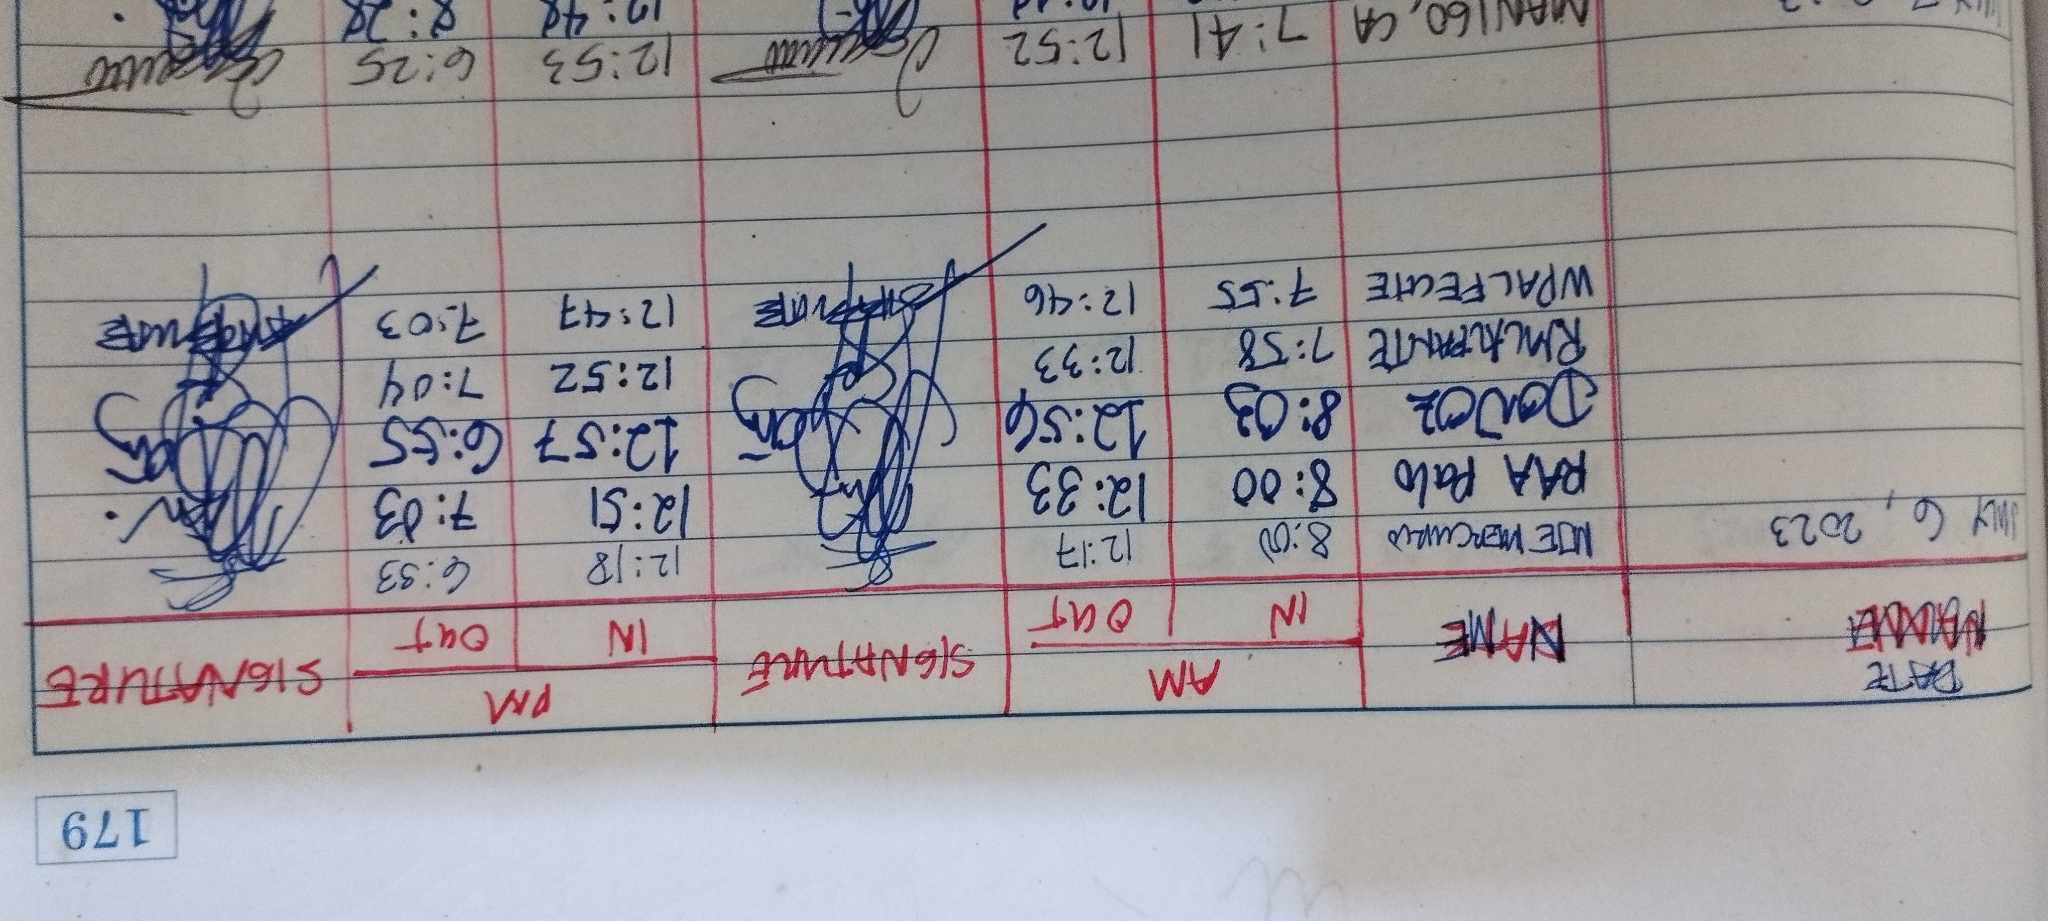 179
DATE AM PM
NAME IN OUT SIGNATURE IN OUT SIGNATURE
JULY 6, 2023 NJE MERCURIO 8:00 12:17 12:18 6:33
RAA Palo 8:00 12:33 12:51 7:03
8:03 12:56 12:57 6:55
RMC ALPANTE 7:58 12:33 12:52 7:04
WPALFECHE 7:55 12:46 12:47 7:03
MANIGO, CA 7:41 12:52 12:53 6:25
12:48 8:28